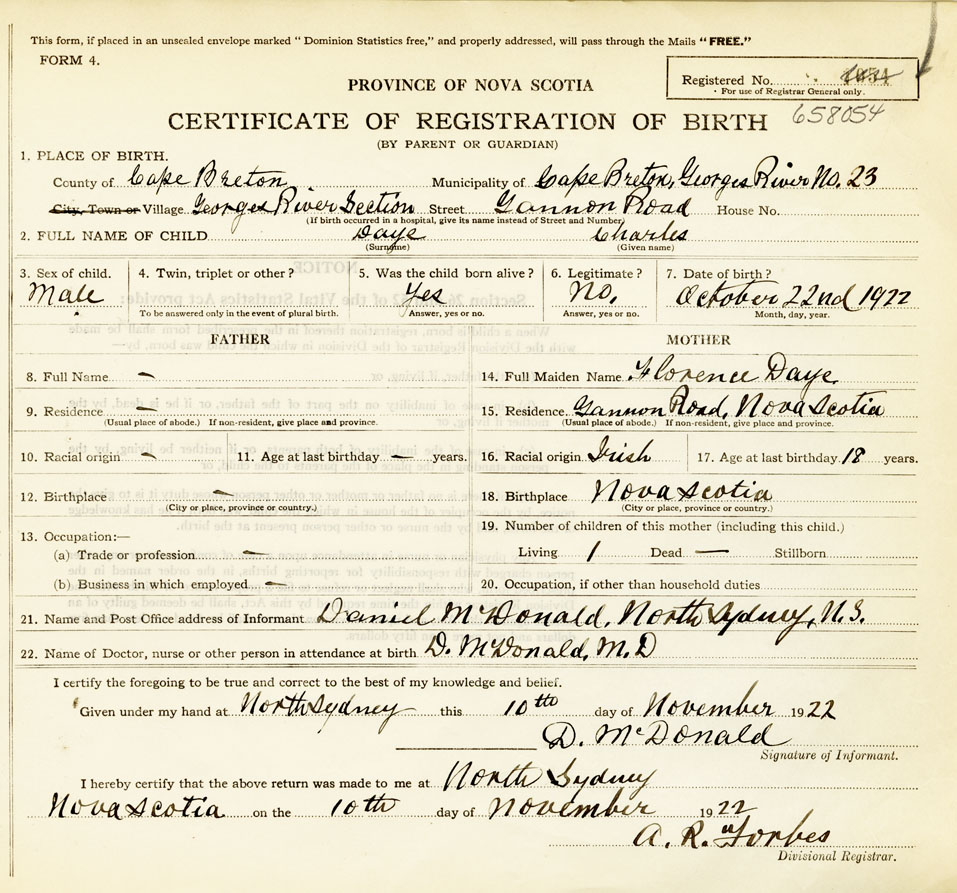 This form, if placed in an unsealed envelope marked "Dominion Statistics free," and properly addressed, will pass through the Mails "FREE."
FORM 4.
Registered No.
• For use of Registrar General only.
PROVINCE OF NOVA SCOTIA
658054
CERTIFICATE OF REGISTRATION OF BIRTH
(BY PARENT OR GUARDIAN)
1. PLACE OF BIRTH.
County of Cape Breton Municipality of Cape Breton, Georges River No. 23
City, Town or Village Georges River Section Street Gannon Road House No.
(If birth occurred in a hospital, give its name instead of Street and Number)
2. FULL NAME OF CHILD Daye Charles
(Surname) (Given name)
3. Sex of child. 4. Twin, triplet or other? 5. Was the child born alive? 6. Legitimate? 7. Date of birth?
Male Yes No. October 22nd 1922
To be answered only in the event of plural birth. Answer, yes or no. Answer, yes or no. Month, day, year.
FATHER MOTHER
8. Full Name — 14. Full Maiden Name Florence Daye
9. Residence — 15. Residence. Gannon Road, Nova Scotia
(Usual place of abode.) If non-resident, give place and province. (Usual place of abode.) If non-resident, give place and province.
10. Racial origin — 11. Age at last birthday — years. 16. Racial origin Irish 17. Age at last birthday 18 years.
12. Birthplace — 18. Birthplace Nova Scotia
(City or place, province or country.) (City or place, province or country.)
13. Occupation:— 19. Number of children of this mother (including this child.)
(a) Trade or profession — Living 1 Dead — Stillborn
(b) Business in which employed — 20. Occupation, if other than household duties
21. Name and Post Office address of Informant Daniel McDonald, North Sydney, N.S.
22. Name of Doctor, nurse or other person in attendance at birth D. McDonald, M.D
I certify the foregoing to be true and correct to the best of my knowledge and belief.
Given under my hand at North Sydney this 10th day of November 1922
D. McDonald
Signature of Informant.
I hereby certify that the above return was made to me at North Sydney
Nova Scotia on the 10th day of November 1922
A. R. Forbes
Divisional Registrar.